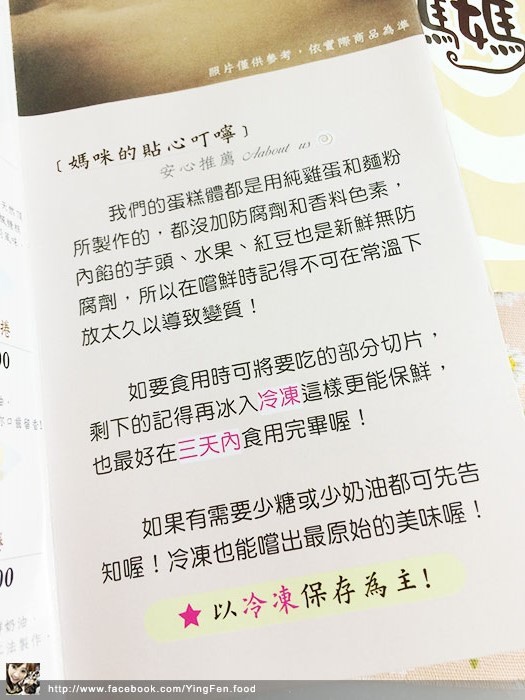 媽
照片僅供參考，依實際商品為準
〔媽咪的貼心叮嚀〕
安心推薦 Aabout us
我們的蛋糕體都是用純雞蛋和麵粉
所製作的，都沒加防腐劑和香料色素，
內餡的芋頭、水果、紅豆也是新鮮無防
腐劑，所以在嚐鮮時記得不可在常溫下
放太久以導致變質！
如要食用時可將要吃的部分切片，
剩下的記得再冰入冷凍這樣更能保鮮，
也最好在三天內食用完畢喔！
如果有需要少糖或少奶油都可先告
知喔！冷凍也能嚐出最原始的美味喔！
★以冷凍保存為主！
捲
00
http://www.facebook.com/YingFen.food